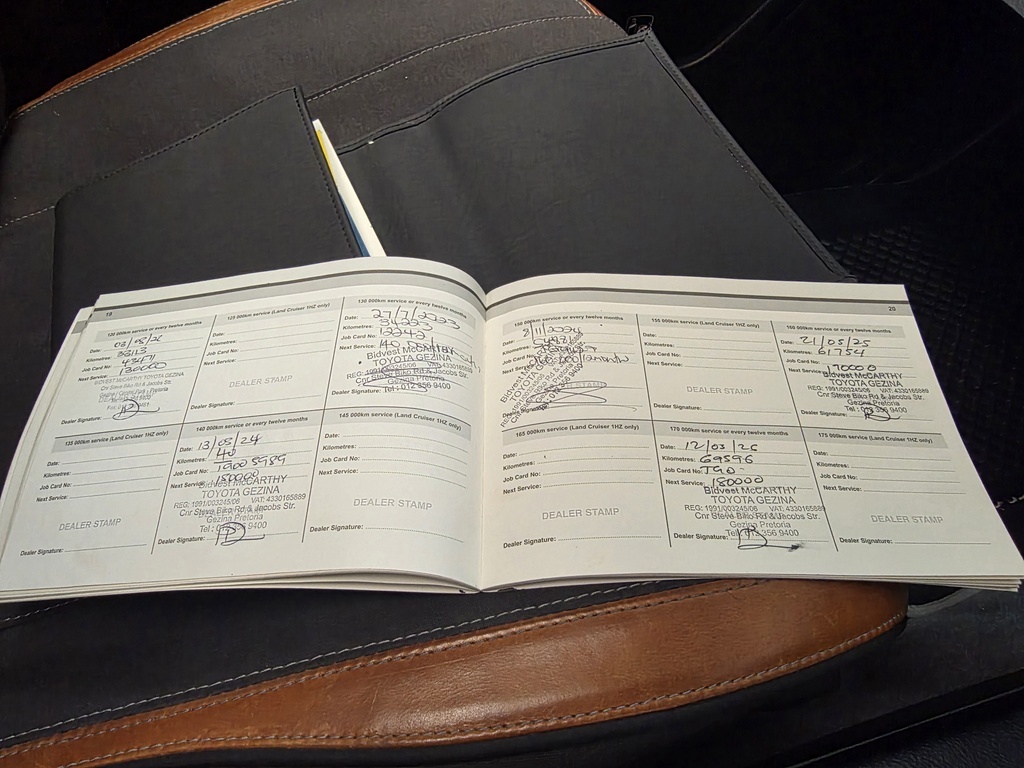 19
120 000km service or every twelve months
Date:
Kilometres: 33113
Job Card No: 43471
Next Service: 130000
BIDVEST McCARTHY TOYOTA GEZINA
Cnr Steve Biko Rd & Jacobs Str.
Dealer Signature:
125 000km service (Land Cruiser 1HZ only)
Date:
Kilometres:
Job Card No:
Next Service:
DEALER STAMP
Dealer Signature:
130 000km service or every twelve months
Date: 27/7/2023
Kilometres:
Job Card No:
Next Service:
Bidvest McCARTHY
TOYOTA GEZINA
REG: 1991/003245/06 VAT: 4330165889
Cnr Steve Biko Rd & Jacobs Str.
Gezina Pretoria
Tel: 012 356 9400
Dealer Signature:
135 000km service (Land Cruiser 1HZ only)
Date:
Kilometres:
Job Card No:
Next Service:
DEALER STAMP
Dealer Signature:
140 000km service or every twelve months
Date: 13/05/24
Kilometres: 40
Job Card No: 19005989
Next Service: 150000
Bidvest McCARTHY
TOYOTA GEZINA
REG: 1991/003245/06 VAT: 4330165889
Cnr Steve Biko Rd & Jacobs Str.
Gezina Pretoria
Tel: 012 356 9400
Dealer Signature:
145 000km service (Land Cruiser 1HZ only)
Date:
Kilometres:
Job Card No:
Next Service:
DEALER STAMP
Dealer Signature:
20
150 000km service or every twelve months
Date: 8/11/2024
Kilometres:
Job Card No:
Next Service:
Dealer Signature:
155 000km service (Land Cruiser 1HZ only)
Date:
Kilometres:
Job Card No:
Next Service:
DEALER STAMP
Dealer Signature:
160 000km service or every twelve months
Date: 21/05/25
Kilometres: 61754
Job Card No:
Next Service: 170000
Bidvest McCARTHY
TOYOTA GEZINA
REG: 1991/003245/06 VAT: 4330165889
Cnr Steve Biko Rd & Jacobs Str.
Gezina Pretoria
Tel: 012 356 9400
Dealer Signature:
165 000km service (Land Cruiser 1HZ only)
Date:
Kilometres:
Job Card No:
Next Service:
DEALER STAMP
Dealer Signature:
170 000km service or every twelve months
Date: 12/03/26
Kilometres: 69596
Job Card No: J90
Next Service: 180000
Bidvest McCARTHY
TOYOTA GEZINA
REG: 1991/003245/06 VAT: 4330165889
Cnr Steve Biko Rd & Jacobs Str.
Gezina Pretoria
Tel: 012 356 9400
Dealer Signature:
175 000km service (Land Cruiser 1HZ only)
Date:
Kilometres:
Job Card No:
Next Service:
DEALER STAMP
Dealer Signature: